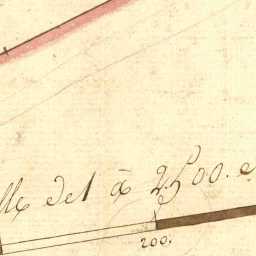 lle de 1 à 2500. e
200.